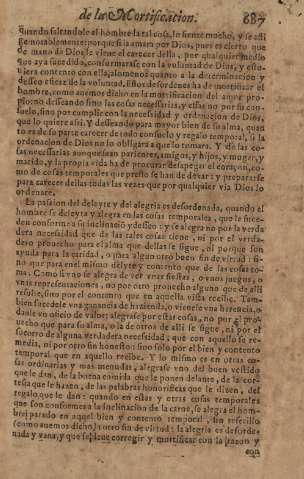 de la Mortificacion. 687
quando faltandole al hombre la tal cosa, lo siente mucho, y se afli
ge notablemente: porque si la aman por Dios, pues es cierto que
de mano de Dios le viene el carecer della, por qualquier medio
que aya sucedido, conformarase con la voluntad de Dios, y estu-
uiera contento con ella, alomenos quanto a la determinacion y
desseo eficaz de la voluntad. Estos desordenes ha de mortificar el
hombre, como auemos dicho en la mortificacion del amor pro-
prio no desseando sino las cosas necessarias, y essas no por su con-
suelo, sino por cumplir con la necessidad y ordenacion de Dios,
que lo quiere assi. Y desseando para mayor bien de su alma, quan
to es de su parte carecer de todo consuelo y regalo temporal, si la
ordenacion de Dios no lo obligara a que lo tomara. Y de las co-
sas necessarias aunque sean parientes, amigos, y hijos, y muger, y
marido, y la propia vida ha de procurar despegar el coraçon, co-
mo de cosas temporales que presto se han de dexar: y prepararse
para carecer dellas todas las vezes que por qualquier via Dios lo
ordenare.
La passion del deleyte y del alegria es desordenada, quando el
hombre se deleyta y alegra en las cosas temporales, que le suce-
den conforme a su inclinacion y desseo: y se alegra no por la verda
dera necessidad que da las tales cosas tiene, ni por el verda-
dero prouecho para el alma que dellas se sigue, ni porque son
ayuda para la caridad, o para algun otro buen fin de virtud: si-
no que para en el mismo deleyte y contento que de las cosas to-
ma. Como si vno se alegra de ver vnas fiestas, o vnos juegos, o
vnas representaciones, no por otro prouecho alguno que de alli
resulte, sino por el contento que en aquella vista recibe. Tam-
bien sucedele vna ganancia de hazienda, o vienele vna herencia, o
danle vn oficio de valor: alegrase por estas cosas, no por el pro-
uecho que para su alma, o la de otros de alli se sigue, ni por el
socorro de alguna verdadera necessidad, que con aquello se re-
media, ni por otro fin honesto: sino solo por el bien y contento
temporal que en aquello recibe. Y lo mismo es en otras co-
sas ordinarias y mas menudas, alegrase vno del buen vestido
que le dan, de la buena comida que le ponen delante, de la cor-
tesia que le hazen, de las palabras honorificas que le dizen, del
regalo que le dan: quando en estas y otras cosas temporales
que son conformes a la inclinacion de la carne, se alegra el hom-
bre parado en aquel bien y contento temporal, sin referirlo
(como auemos dicho) a otro fin de virtud: la alegria es desorde-
nada y vana, y que se deue corregir y mortificar con la razon y
con